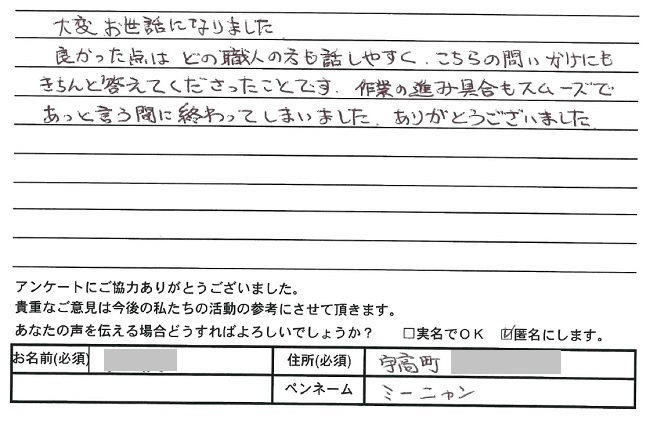 大変 お世話になりました
良かった点は どの職人の方も話しやすく、こちらの問いかけにも
きちんと答えてくださったことです、作業の進み具合もスムーズで
あっと言う間に終わってしまいました、ありがとうございました
アンケートにご協力ありがとうございました。
貴重なご意見は今後の私たちの活動の参考にさせて頂きます。
あなたの声を伝える場合どうすればよろしいでしょうか? □実名でOK ☑匿名にします。
お名前(必須) 住所(必須) 宇高町
ペンネーム ミーニャン